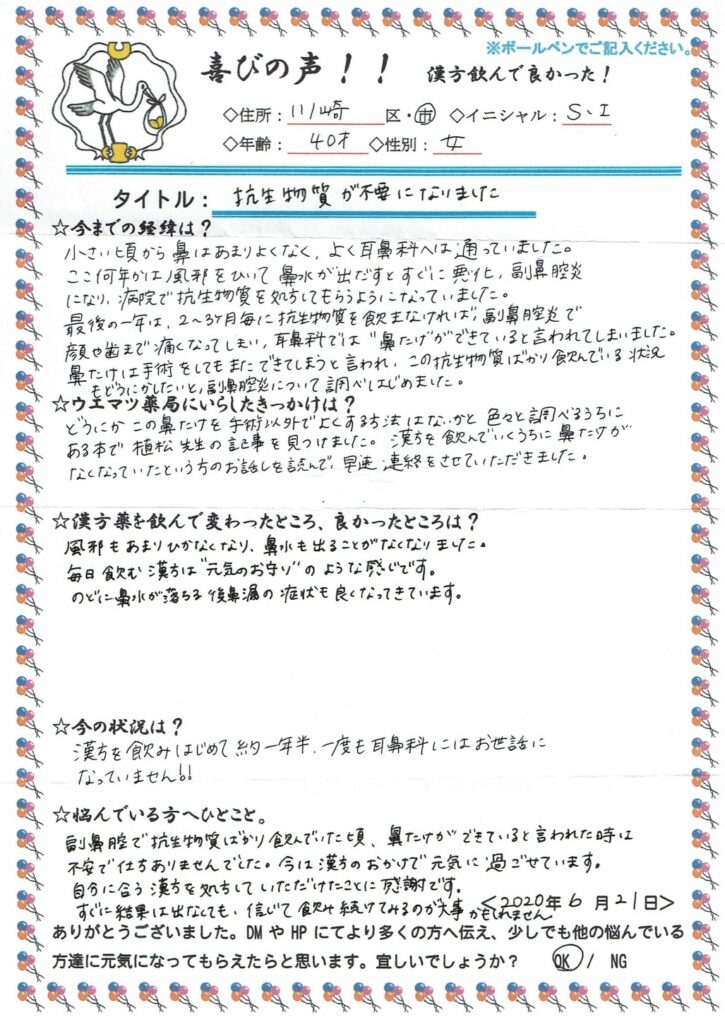 ※ボールペンでご記入ください。
喜びの声！！ 漢方飲んで良かった！
◇住所：川崎 区・市 ◇イニシャル：S、I
◇年齢：40才 ◇性別：女
タイトル：抗生物質が不要になりました
☆今までの経緯は？
小さい頃から鼻はあまりよくなく、よく耳鼻科へは通っていました。
ここ何年かは風邪をひいて鼻水が出だすとすぐに悪化、副鼻腔炎
になり、病院で抗生物質を処ちしてもらうようになっていました。
最後の一年は、2〜3ヶ月毎に抗生物質を飲まなければ、副鼻腔炎で
顔や歯まで痛くなってしまい、耳鼻科では"鼻たけ"ができていると言われてしまいました。
鼻たけは手術をしてもまたできてしまうと言われ、この抗生物質ばかり飲んでいる状況
もどうにかしたいと、副鼻腔炎について調べはじめました。
☆ウエマツ薬局にいらしたきっかけは？
どうにかこの鼻たけを手術以外でよくする方法はないかと色々と調べるうちに
ある本で植松先生の記事を見つけました。漢方を飲んでいくうちに鼻たけが
なくなっていたという方のお話しを読んで、早速連絡をさせていただきました。
☆漢方薬を飲んで変わったところ、良かったところは？
風邪もあまりひかなくなり、鼻水も出ることがなくなりました。
毎日飲む漢方は"元気のお守り"のような感じです。
のどに鼻水が落ちる後鼻漏の症状も良くなってきています。
☆今の状況は？
漢方を飲みはじめて約一年半、一度も耳鼻科にはお世話に
なっていません!!
☆悩んでいる方へひとこと。
副鼻腔で抗生物質ばかり飲んでいた頃、鼻たけができていると言われた時は
不安で仕ちありませんでした。今は漢方のおかげで元気に過ごせています。
自分に合う漢方を処ちしていただけたことに感謝です。
すぐに結果は出なくても、信じて飲み続けてみるのが大事かもしれません。
＜2020年6月21日＞
ありがとうございました。DMやHPにてより多くの方へ伝え、少しでも他の悩んでいる
方達に元気になってもらえたらと思います。宜しいでしょうか？ OK / NG